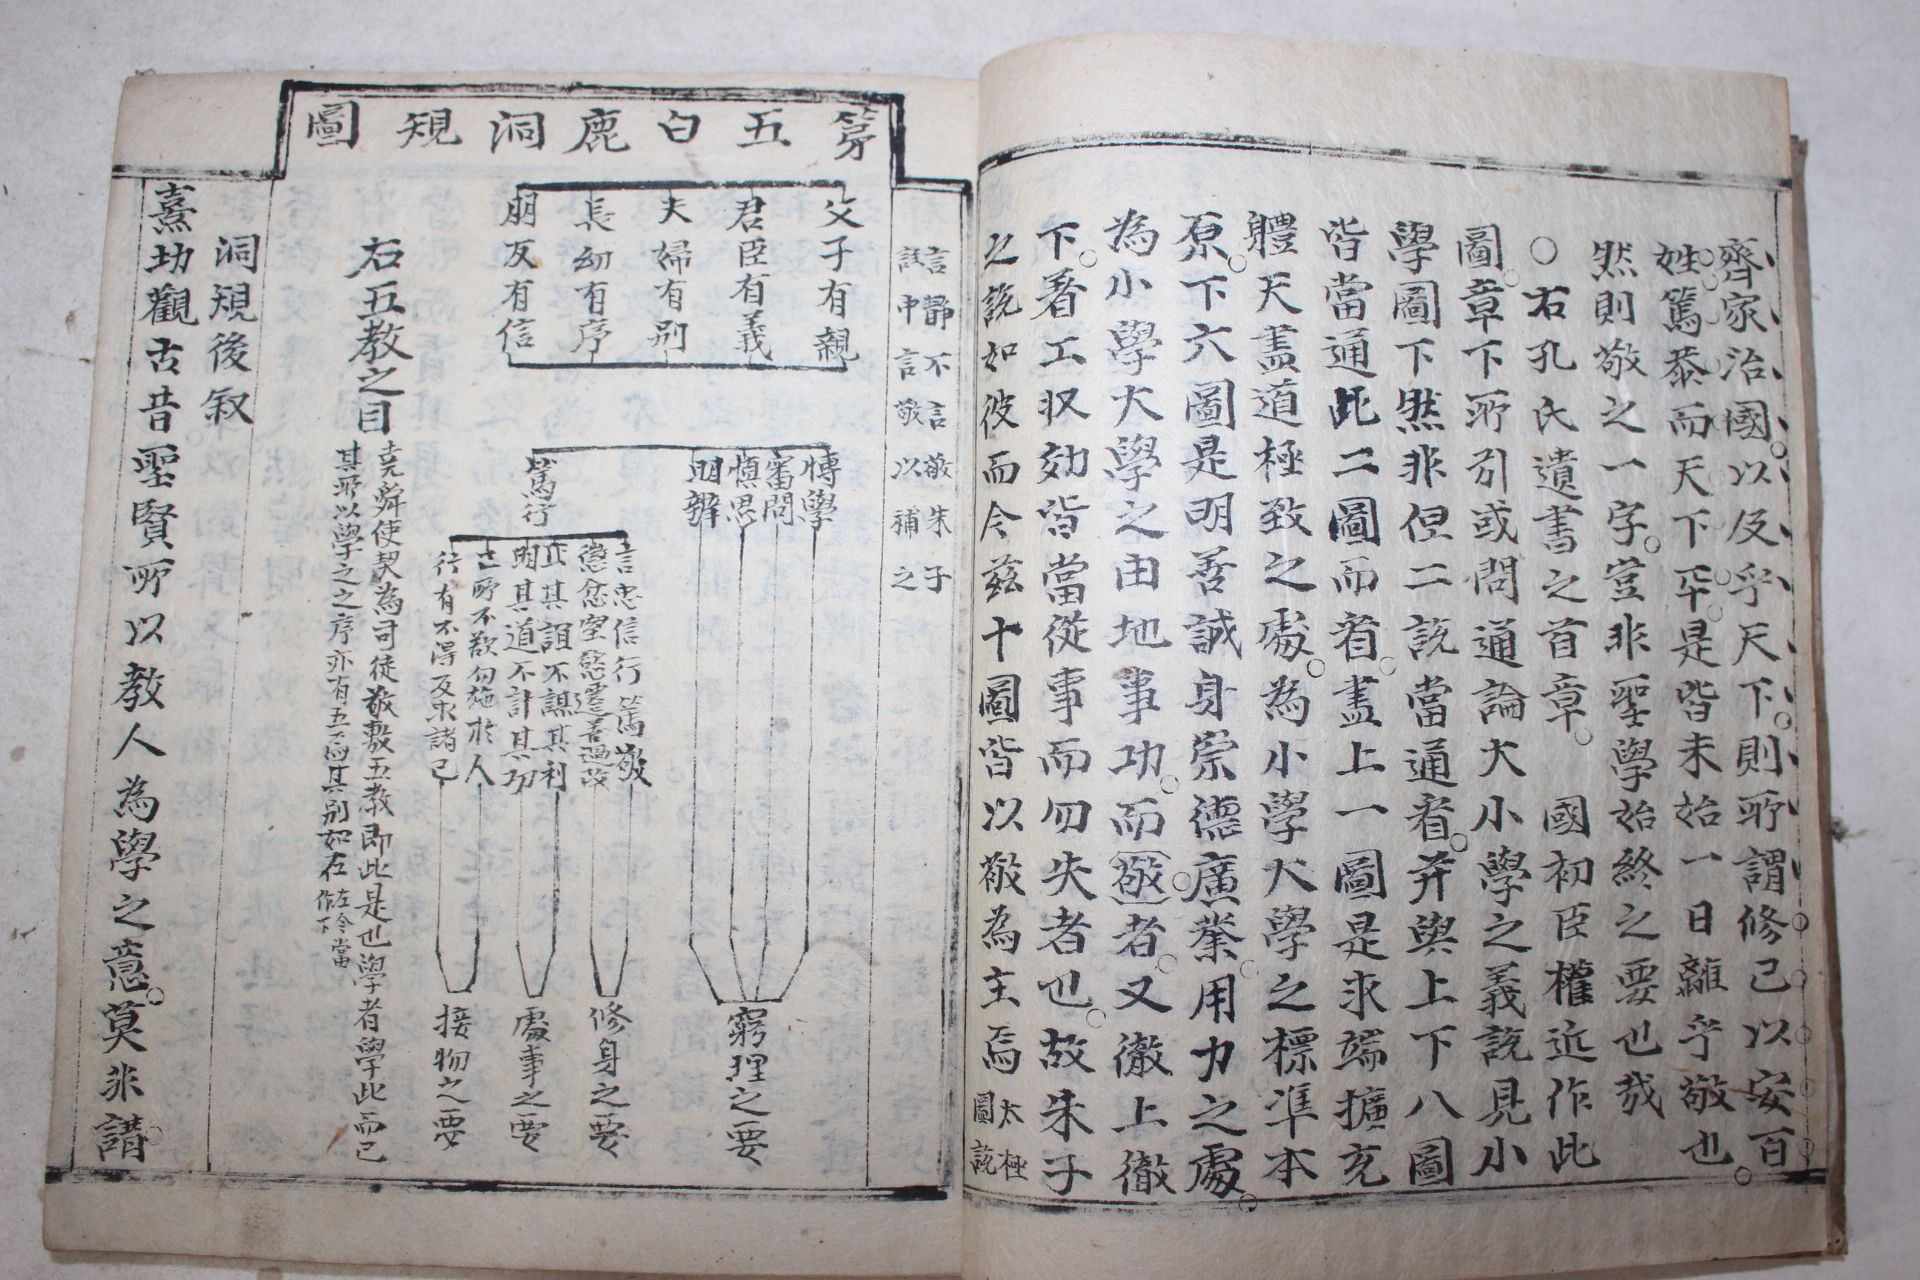 齊家治國以及乎天下則所謂修己以安百
姓篤恭而天下平是皆未始一日離乎敬也
然則敬之一字豈非聖學始終之要也哉
○右孔氏遺書之首章 國初臣權近作此
圖章下所引或問通論大小學之義說見小
學圖下然非但二說當通看并與上下八圖
皆當通此二圖而看蓋上一圖是求端擴充
體天盡道極致之處為小學大學之標準本
原下六圖是明善誠身崇德廣業用力之處
為小學大學之由地事功而敬者又徹上徹
下著工收效皆當從事而勿失者也故朱子
之說如彼而今玆十圖皆以敬為主焉太極
圖說
言靜不言敬朱子
註中言敬以補之
第五白鹿洞規圖
父子有親
君臣有義
夫婦有別
長幼有序
朋友有信
博學
審問
慎思
明辨
篤行
言忠信行篤敬
懲忿窒慾遷善改過
正其誼不謀其利
明其道不計其功
己所不欲勿施於人
行有不得反求諸己
窮理之要
修身之要
處事之要
接物之要
右五教之目
堯舜使契為司徒敬敷五教即此是也學者學此而已
其所以學之之序亦有五焉其別如左左今當
作下
洞規後叙
熹竊觀古昔聖賢所以教人為學之意莫非講